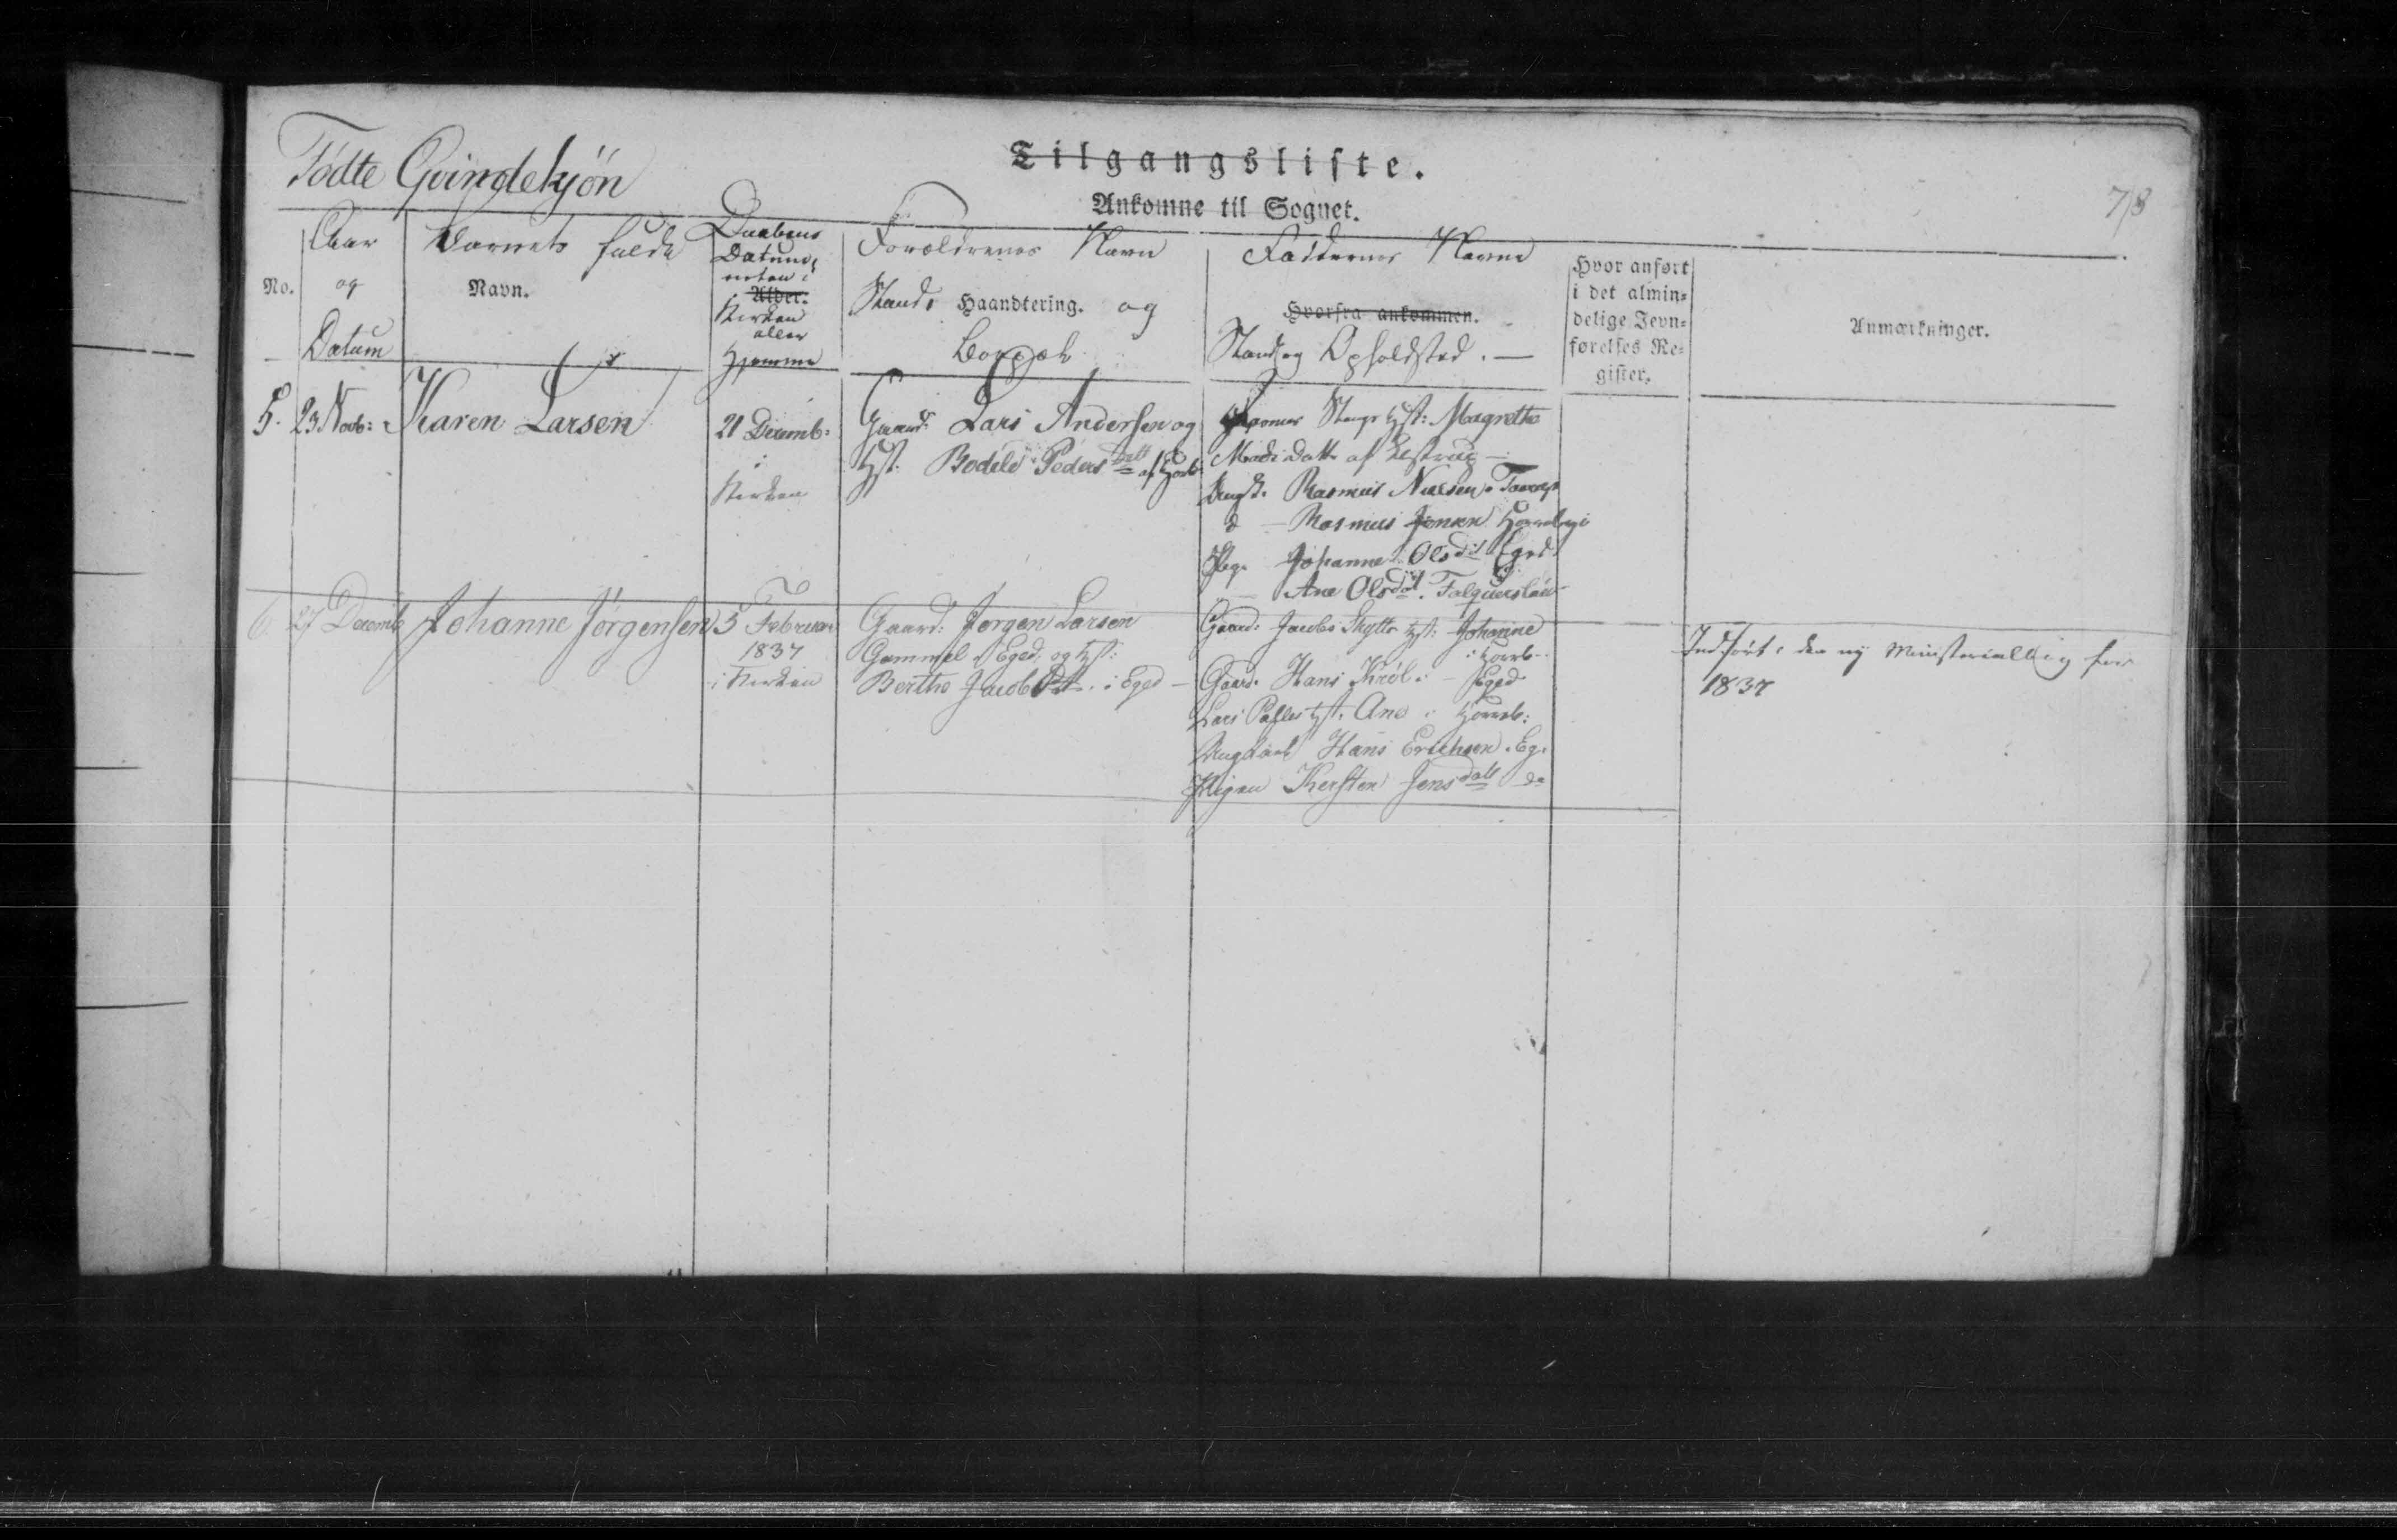 Födte Qvindekjön
Tilgangsliste.
Ankomne til Sognet.
78
No.
Aar
og
Datum
Barnets fulde
Navn.
Daabens
Datum,
enten i
Alder.
Kirken
eller
Hjemme
Forældrenes Navn
Stand, Haandtering. og
Bopæl
Faddernes Navne
Hvorfra ankommen.
Stand og Opholdsted. —
Hvor anført
i det almin=
delige Jevn=
førelses Re=
gister.
Anmærkninger.
5. 23 Novb: Karen Larsen
21 Decemb:
i
Kirken
Gaard: Lars Andersen og
Hst: Bodele Peders Datt af
Hst: Magrethe
Mads Datt af
Rasmus Nielsen
d — Rasmus Jensen
Johanne Olsdt Eged
— Ane Olsdat.
6. 27 Decemb Johanne Jörgensen
5 Februar
1837
i Kirken
Gaard: Jörgen Larsen
Gammel Eged og Hst:
Berthe Jacobs Dt. i Eged —
Gaard: Jacob Skytte Hst: Johanne
Gaard: Hans Eged
Lars Hst. Ane i
Hans Erichsen. Eg.
Pigen Kersten Jensdatt do
Indfört i den ny Ministerialbog for
1837